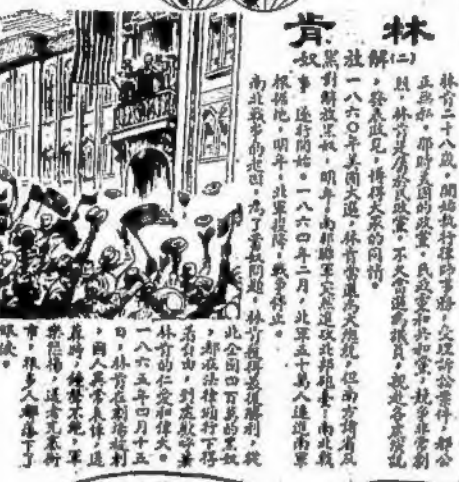 林肯
(二)解放黑奴
林肯二十八歲，開始執行律師事務，處理訴訟案件，都公
正無私。那時美國的政黨，民主黨和共和黨，競爭非常劇
烈，林肯是屬於共和黨，不久當選為議員，親赴各處演說
，發表政見，博得大眾的同情。
一八六〇年美國大選，林肯當選為大總統，但南方諸省反
對解放黑奴，明年，南部聯軍突然進攻北部砲臺，南北戰
事，遂行開始。一八六四年二月，北軍五十萬人進迫南軍
根據地，明年，北軍投降，戰事停止。
南北戰爭的起因，為了黑奴問題，林肯獲得最後勝利，從
此全國四百萬的黑奴
，都依法律頒行下得
着自由，到處歌頌着
林肯的仁愛和偉大。
一八六五年四月十五
日，林肯在劇場被刺
，國人異常哀悼，送
葬時，鐘聲不絕，軍
樂悲揚，送者充塞街
市，很多人都落下了
眼淚。